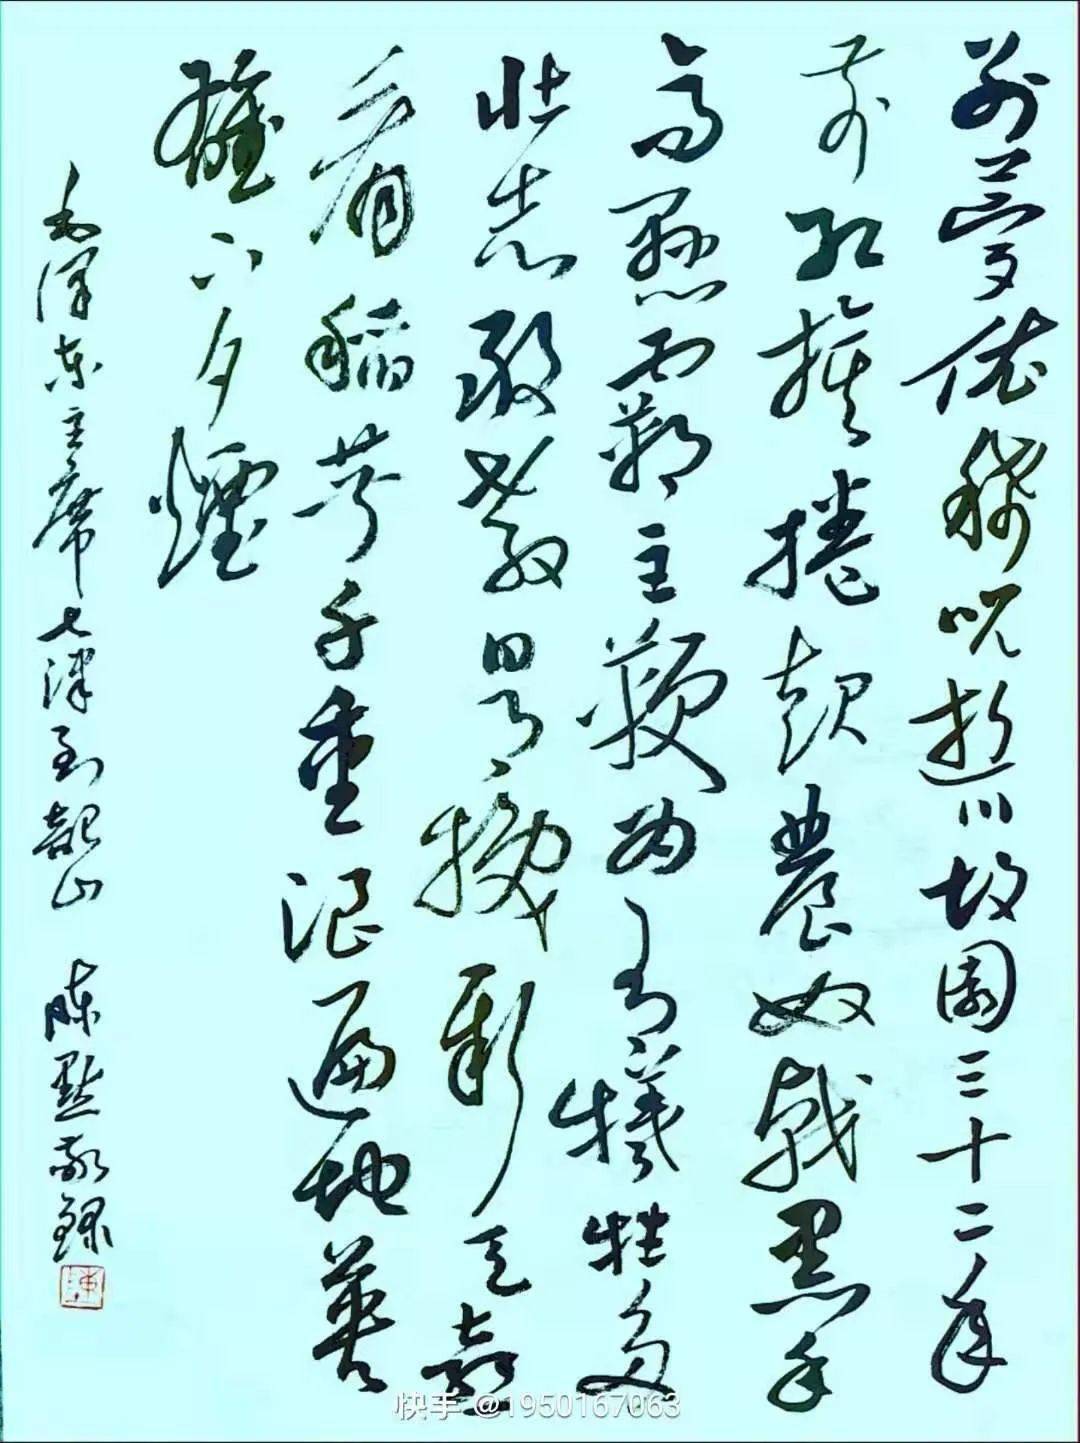 别梦依稀咒逝川故园三十二年
前红旗捲起農奴戟黑手
高悬霸主鞭为有犧牲多
壮志敢教日月換新天喜
看稻菽千重浪遍地英
雄下夕煙
毛泽东主席七律到韶山 陈敬録
快手 @1950167063